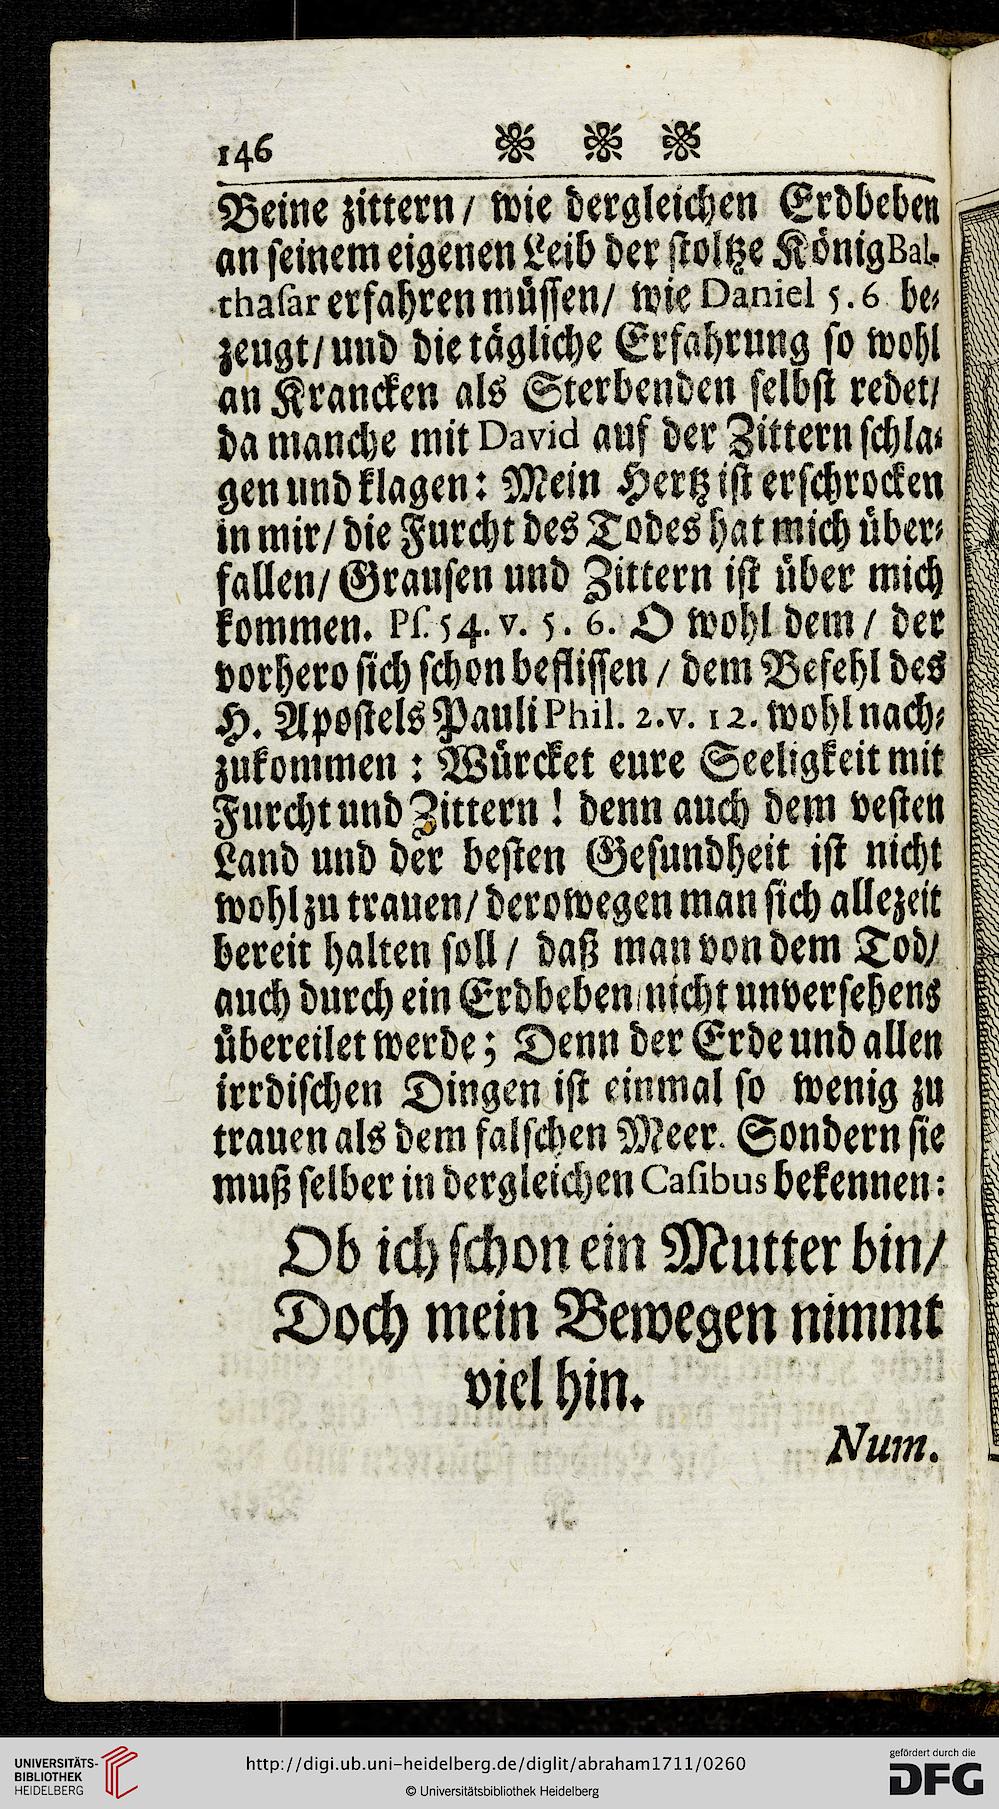 146
Beine zittern / wie dergleichen Erdbeben
an seinem eigenen Leib der stoltze König Bal-
thasar erfahren müssen / wie Daniel 5. 6 be-
zeugt / und die tägliche Erfahrung so wohl
an Krancken als Sterbenden selbst redet /
da manche mit David auf der Zittern schla-
gen und klagen: Mein Hertz ist erschrocken
in mir / die Furcht des Todes hat mich über-
fallen / Grausen und Zittern ist über mich
kommen. Ps. 54. v. 5. 6. O wohl dem / der
vorhero sich schon beflissen / dem Befehl des
H. Apostels Pauli Phil. 2. v. 12. wohl nach-
zukommen : Würcket eure Seeligkeit mit
Furcht und Zittern ! denn auch dem vesten
Land und der besten Gesundheit ist nicht
wohl zu trauen / derowegen man sich allezeit
bereit halten soll / daß man von dem Tod /
auch durch ein Erdbeben / nicht unversehens
übereilet werde; Denn der Erde und allen
irrdischen Dingen ist einmal so wenig zu
trauen als dem falschen Meer. Sondern sie
muß selber in dergleichen Casibus bekennen:
Ob ich schon ein Mutter bin /
Doch mein Bewegen nimmt
viel hin.
Num.
UNIVERSITÄTS-
BIBLIOTHEK
HEIDELBERG
http://digi.ub.uni-heidelberg.de/diglit/abraham1711/0260
© Universitätsbibliothek Heidelberg
gefördert durch die
DFG